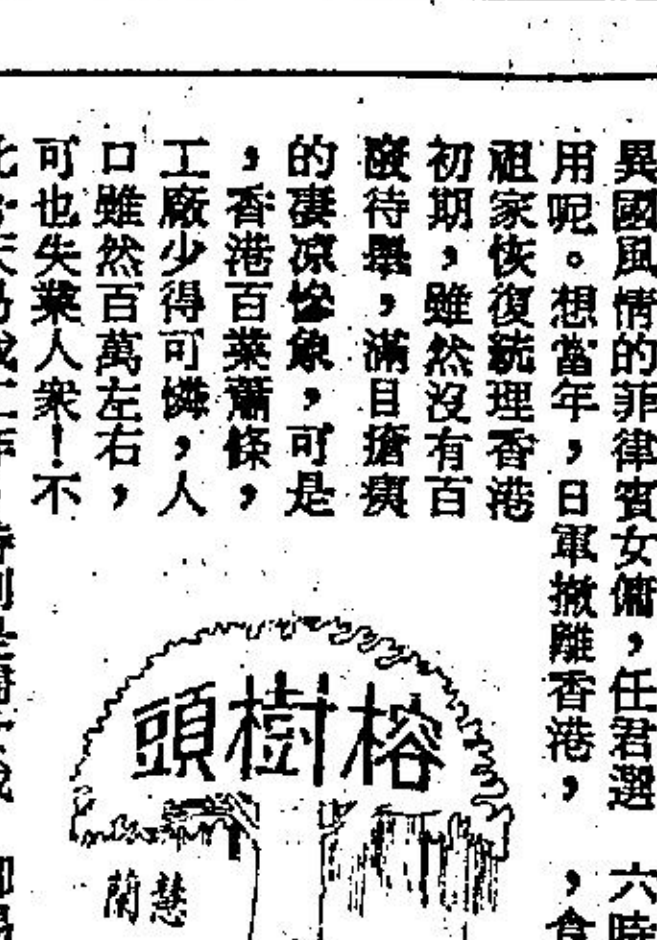 異國風情的菲律賓女傭，任君選
用呢。想當年，日軍撤離香港，
祖家恢復統理香港
初期，雖然沒有百
廢待舉，滿目瘡痍
的淒凉慘象，可是
，香港百業蕭條，
工廠少得可憐，人
口雖然百萬左右，
可也失業人衆！不
榕樹頭
慧蘭
六時
，食